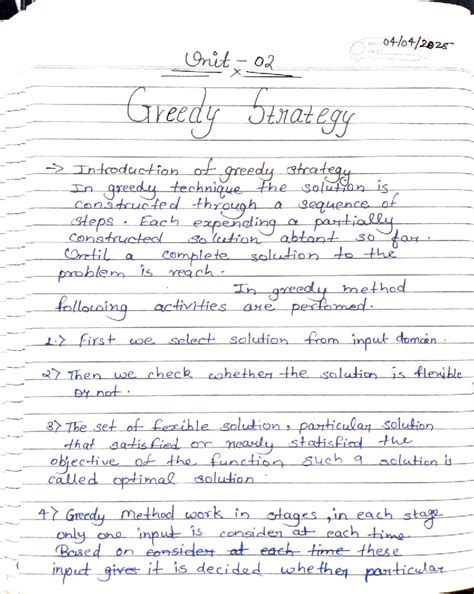 04/04/2025
Unit - 02
Greedy Strategy
→ Introduction of greedy strategy
In greedy technique the solution is
constructed through a sequence of
steps. Each expending a partially
constructed solution abtant so far.
Until a complete solution to the
problem is reach.
In greedy method
following activities are perfomed.
1.> First we select solution from input domain.
2> Then we check whether the solution is flexible
or not.
3> The set of fexible solution, particular solution
that satisfied or nearly statisfied the
objective of the function such a solution is
called optimal solution.
4> Greedy Method work in stages, in each stage
only one input is consider at each time.
Based on consider at each time these
input gives it is decided whether particular